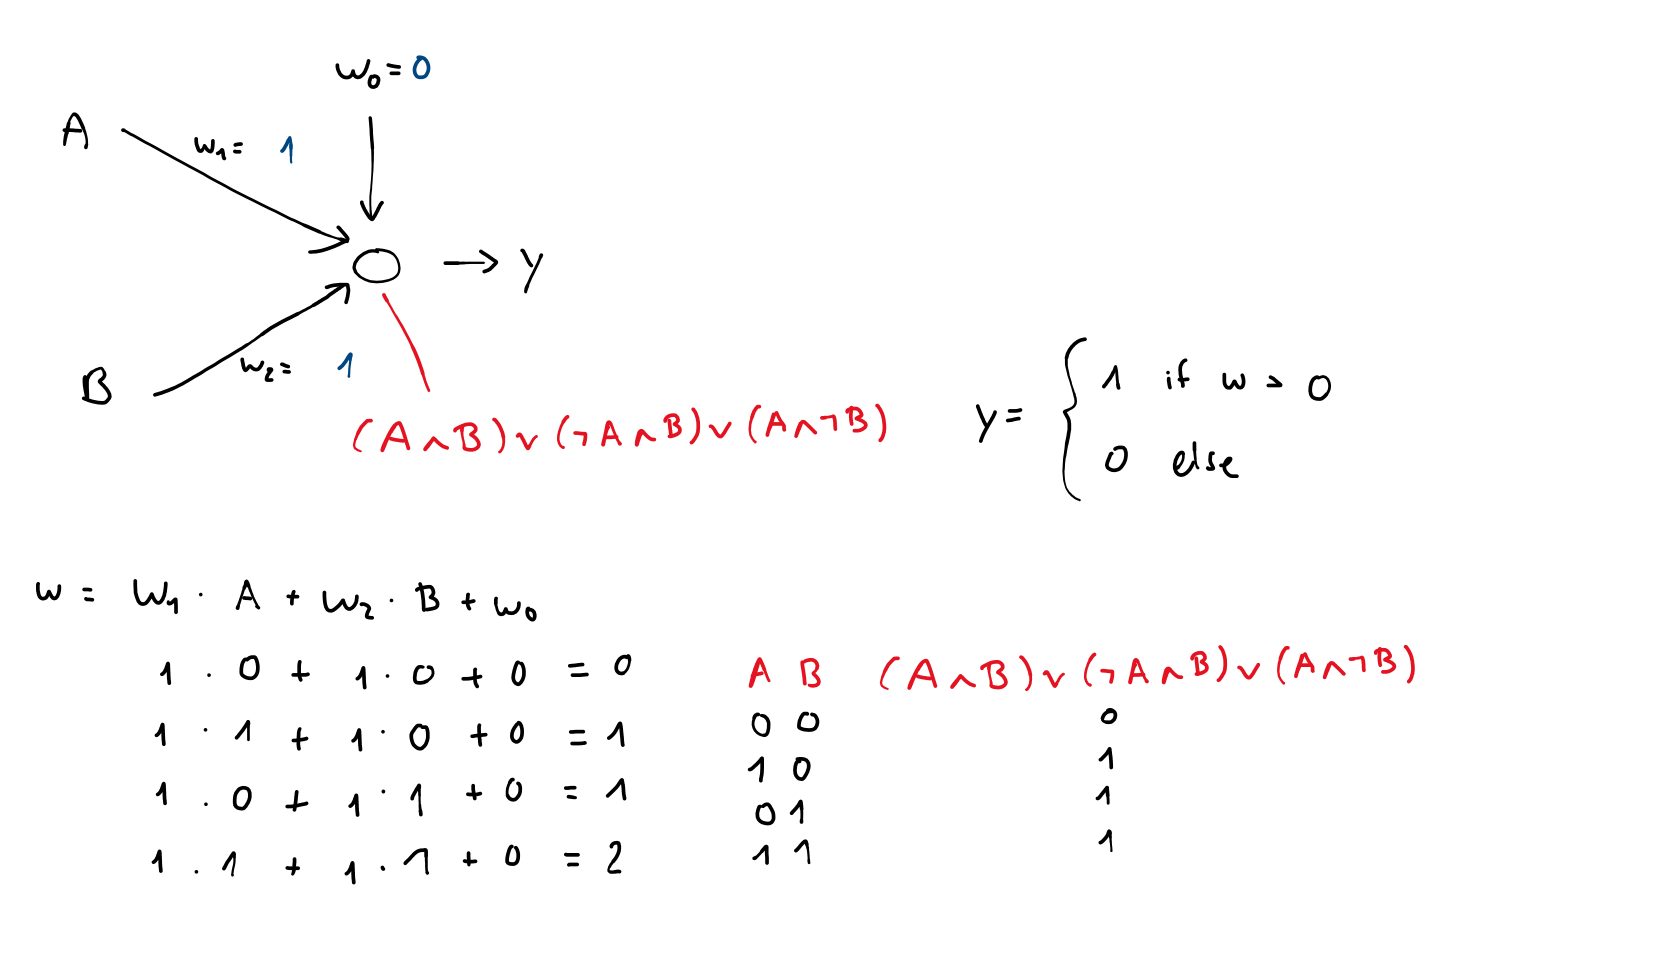 w₀ = 0
A
w₁ = 1
→ y
B
w₂ = 1
(A ∧ B) ∨ (¬A ∧ B) ∨ (A ∧ ¬B)
y = { 1 if w > 0
0 else
w = w₁ · A + w₂ · B + w₀
1 · 0 + 1 · 0 + 0 = 0
1 · 1 + 1 · 0 + 0 = 1
1 · 0 + 1 · 1 + 0 = 1
1 · 1 + 1 · 1 + 0 = 2
A B (A ∧ B) ∨ (¬A ∧ B) ∨ (A ∧ ¬B)
0 0 0
1 0 1
0 1 1
1 1 1